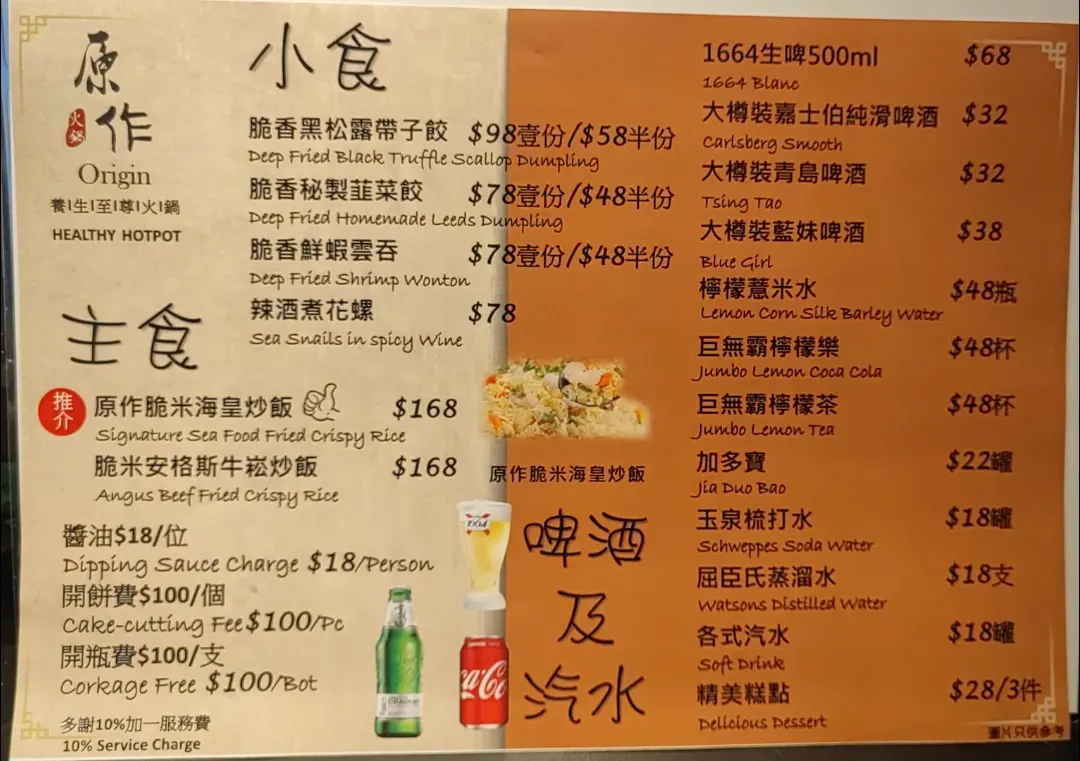 原
作
火鍋
Origin
養|生|至|尊|火|鍋
HEALTHY HOTPOT
小食
脆香黑松露帶子餃 $98壹份/$58半份
Deep Fried Black Truffle Scallop Dumpling
脆香秘製韮菜餃 $78壹份/$48半份
Deep Fried Homemade Leeds Dumpling
脆香鮮蝦雲吞 $78壹份/$48半份
Deep Fried Shrimp Wonton
辣酒煮花螺 $78
Sea Snails in spicy Wine
主食
推介
原作脆米海皇炒飯 $168
Signature Sea Food Fried Crispy Rice
脆米安格斯牛崧炒飯 $168
Angus Beef Fried Crispy Rice
醬油$18/位
Dipping Sauce Charge $18/Person
開餅費$100/個
Cake-cutting Fee $100/Pc
開瓶費$100/支
Corkage Free $100/Bot
多謝10%加一服務費
10% Service Charge
原作脆米海皇炒飯
1664
Coca-Cola
啤酒
及
汽水
1664生啤500ml $68
1664 Blanc
大樽裝嘉士伯純滑啤酒 $32
Carlsberg Smooth
大樽裝青島啤酒 $32
Tsing Tao
大樽裝藍妹啤酒 $38
Blue Girl
檸檬薏米水 $48瓶
Lemon Corn Silk Barley Water
巨無霸檸檬樂 $48杯
Jumbo Lemon Coca Cola
巨無霸檸檬茶 $48杯
Jumbo Lemon Tea
加多寶 $22罐
Jia Duo Bao
玉泉梳打水 $18罐
Schweppes Soda Water
屈臣氏蒸溜水 $18支
Watsons Distilled Water
各式汽水 $18罐
Soft Drink
精美糕點 $28/3件
Delicious Dessert
圖片只供參考